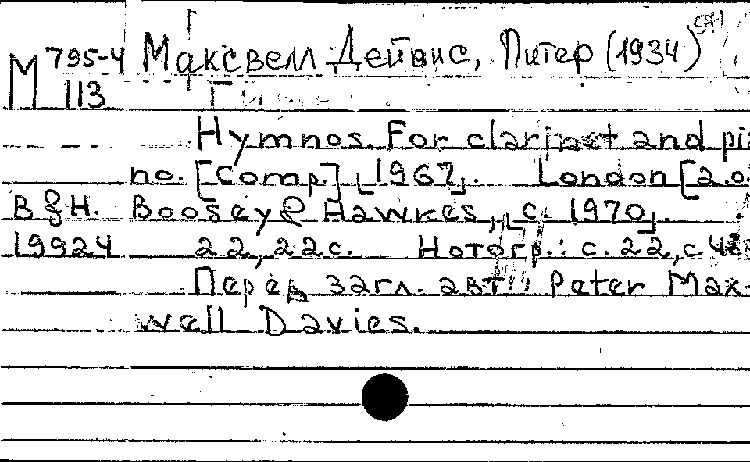 М 795-4 Максвелл Дейвис, Питер (1934)
113
Hymnos. For clarinet and pia-
no. [Comp.] [1967]. London [a.o.
B & H. Boosey & Hawkes, [c. 1970].
19924 22, 22 с. Нотогр.: с. 22, с.
Перед загл. авт.: Peter Max-
well Davies.